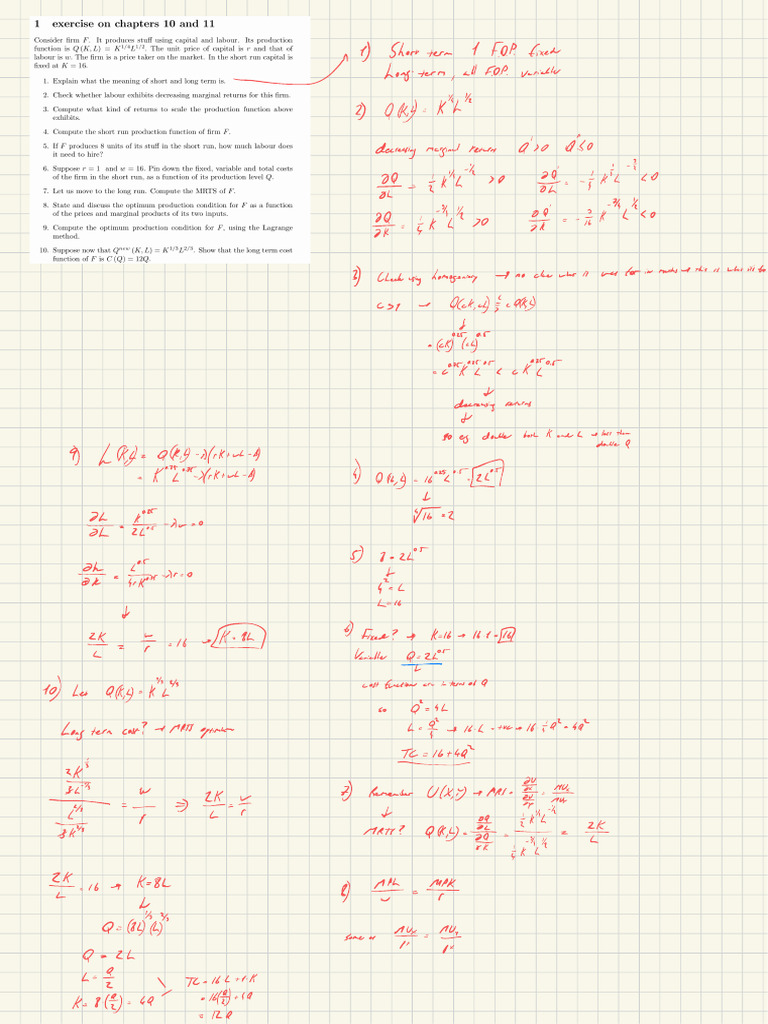 1 exercise on chapters 10 and 11
Consider firm F. It produces stuff using capital and labour. Its production
function is Q (K, L) = K^{1/4}L^{1/2}. The unit price of capital is r and that of
labour is w. The firm is a price taker on the market. In the short run capital is
fixed at K = 16.
1. Explain what the meaning of short and long term is.
2. Check whether labour exhibits decreasing marginal returns for this firm.
3. Compute what kind of returns to scale the production function above
exhibits.
4. Compute the short run production function of firm F.
5. If F produces 8 units of its stuff in the short run, how much labour does
it need to hire?
6. Suppose r = 1 and w = 16. Pin down the fixed, variable and total costs
of the firm in the short run, as a function of its production level Q.
7. Let us move to the long run. Compute the MRTS of F.
8. State and discuss the optimum production condition for F as a function
of the prices and marginal products of its two inputs.
9. Compute the optimum production condition for F, using the Lagrange
method.
10. Suppose now that Q^{new} (K, L) = K^{1/3}L^{2/3}. Show that the long term cost
function of F is C (Q) = 12Q.
1) Short term 1 FOP fixed
Long term, all FOP variable
2) Q(K,L) = K^{1/4} L^{1/2}
decreasing marginal returns Q' > 0 Q'' ≤ 0
∂Q/∂L = 1/2 K^{1/4} L^{-1/2} > 0 ∂Q'/∂L = -1/4 K^{1/4} L^{-3/2} < 0
∂Q/∂K = 1/4 K^{-3/4} L^{1/2} > 0 ∂Q'/∂K = -3/16 K^{-7/4} L^{1/2} < 0
3) Check using homogeneity → no clue what it was for in maths → this is what it's for
c > 1 → Q(cK, cL) = cQ(K,L)
↓
= (cK)^{0.25} (cL)^{0.5}
= c^{0.75} K^{0.25} L^{0.5} < c K^{0.25} L^{0.5}
↓
decreasing returns
↓
so eg double both K and L → less than
double Q
4) Q(16,L) = 16^{0.25} L^{0.5} = 2L^{0.5}
↓
∜16 = 2
5) 8 = 2L^{0.5}
↓
4^2 = L
L = 16
6) Fixed? → K=16 → 16·1 = 16
Variable Q = 2L^{0.5}
L
cost functions are in terms of Q
so Q^2 = 4L
L = Q^2/4 → 16·L = → 16·1/4 Q^2 = 4Q^2
TC = 16 + 4Q^2
7) Remember U(X,Y) → MRS = (∂U/∂x)/(∂U/∂y) = MUx/MUy
↓
MRTS? Q(K,L) = (∂Q/∂L)/(∂Q/∂K) = (1/2 K^{1/4} L^{-1/2})/(1/4 K^{-3/4} L^{1/2}) = 2K/L
8) MPL/w = MPK/r
same as MUx/Px = MUy/Px
9) L(K,L) = Q(K,L) - λ(rK + wL - A)
= K^{0.25} L^{0.25} - λ(rK + wL - A)
∂L/∂L = K^{0.25}/2L^{0.5} - λw = 0
∂L/∂K = L^{0.5}/4rK^{0.75} - λr = 0
↓
2K/L = w/r = 16 → K = 8L
10) Let Q(K,L) = K^{1/3} L^{2/3}
Long term cost? → MRTS optimum
(2K^{1/3}/3L^{1/3})/(L^{2/3}/3K^{2/3}) = w/r ⇒ 2K/L = w/r
2K/L = 16 → K = 8L
↓
Q = (8L)^{1/3} (L)^{2/3}
Q = 2L
L = Q/2
K = 8(Q/2) = 4Q
TC = 16L + rK
= 16(Q/2) + 4Q
= 12Q